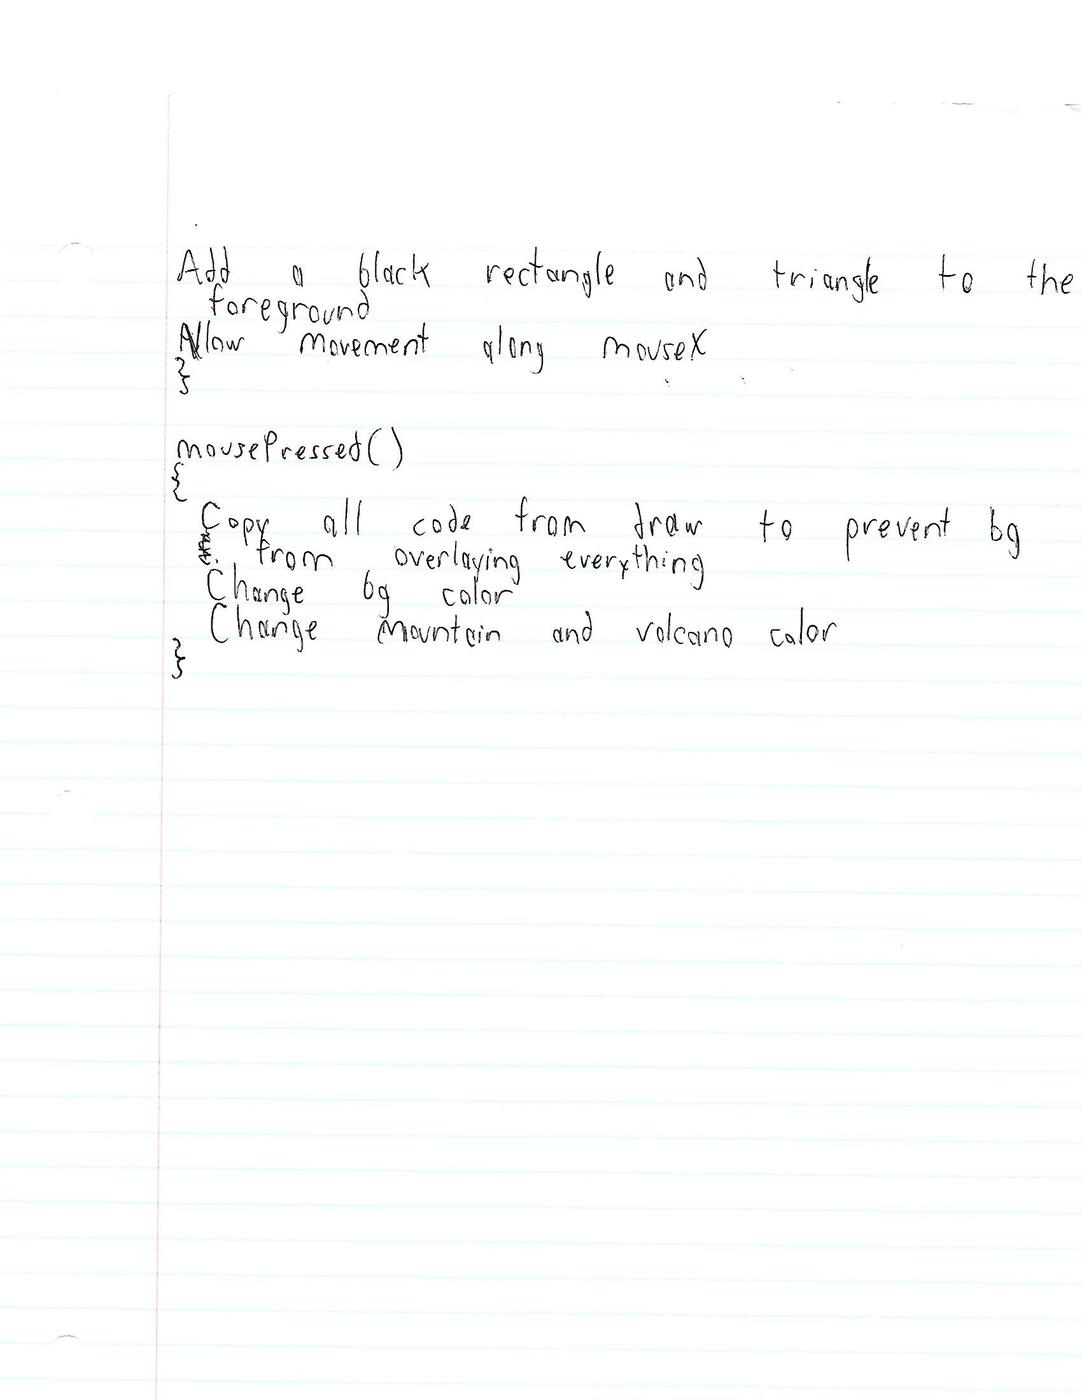 Add a black rectangle and triangle to the
foreground
Allow movement along mouseX
}
mousePressed()
{
Copy all code from draw to prevent bg
from overlaying everything
Change bg color
Change mountain and volcano color
}